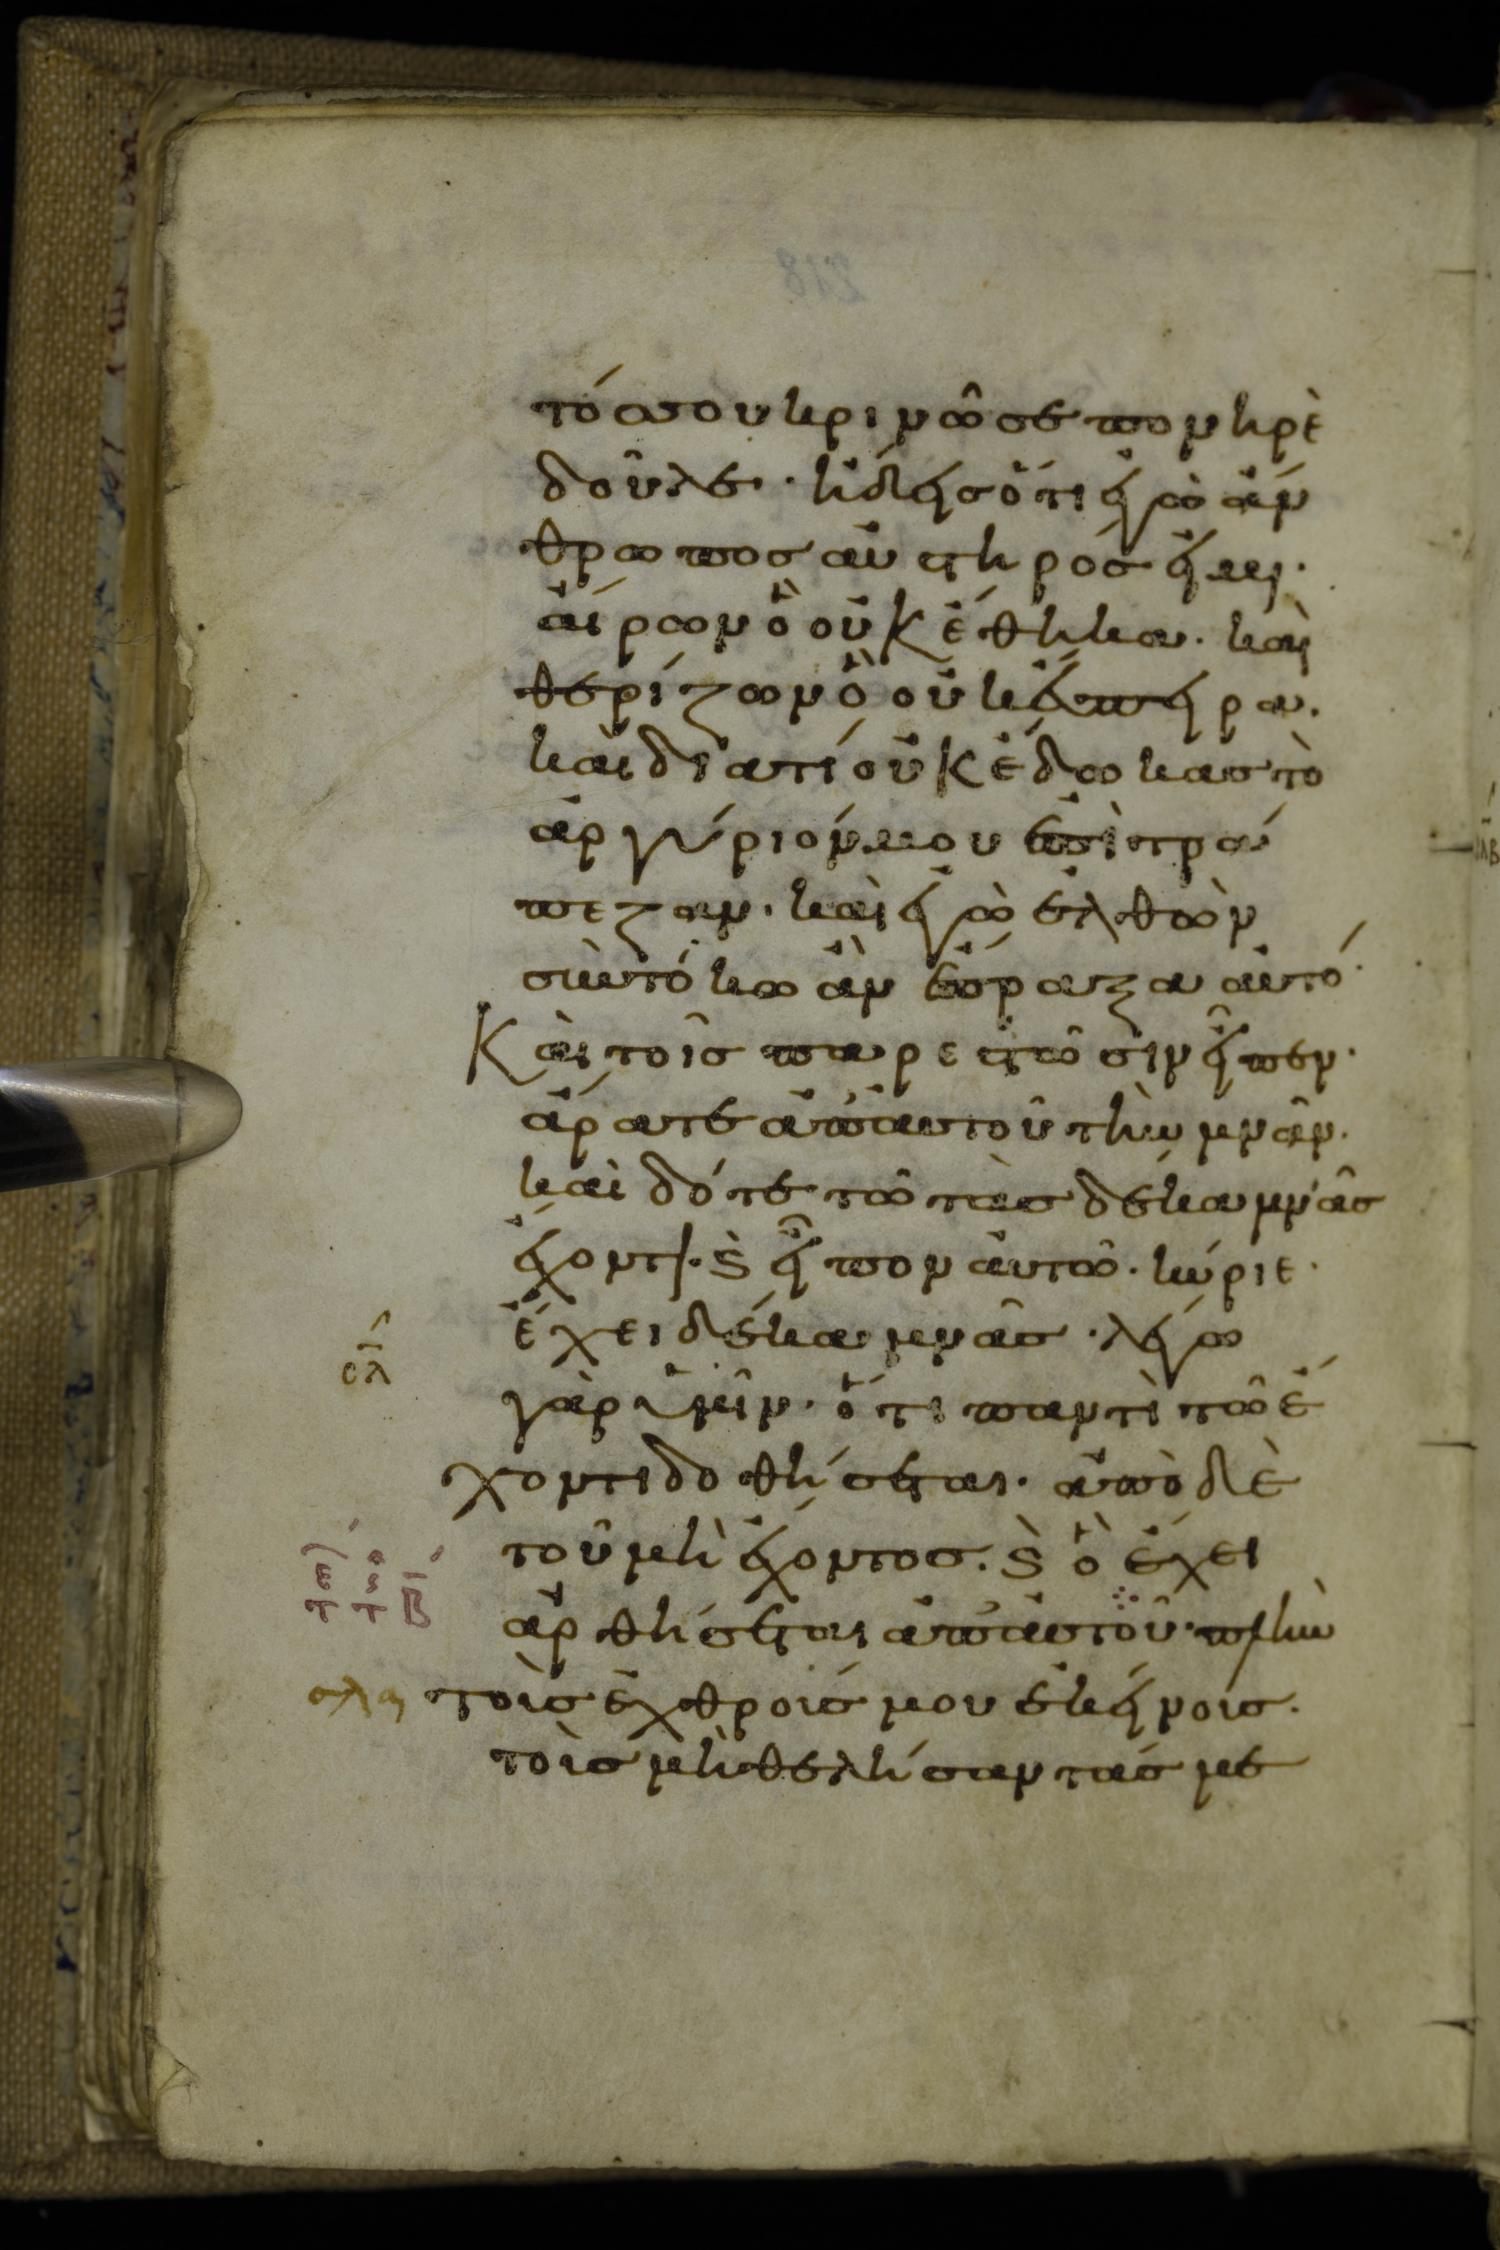 τόσ σου κρινῶ σε πονηρὲ
δοῦλε· ἤδεις ὅτι ἐγὼ ἄν
θρωπος αὐστηρός εἰμι·
αἴρων ὃ οὐκ ἔθηκα· καὶ
θερίζων ὃ οὐκ ἔσπειρα.
καὶ διατί οὐκ ἔδωκας τὸ
ἀργύριόν μου ἐπὶ τρά
πεζαν· καὶ ἐγὼ ἐλθὼν
σὺν τόκω ἂν ἔπραξα αὐτό·
Καὶ τοῖς παρεστῶσιν εἶπεν·
ἄρατε ἀπ' αυτοῦ τὴν μνᾶν·
καὶ δότε τῶ τὰς δέκα μνᾶς
ἔχοντι· ϛ̀ εἶπον αὐτῶ· κύριε·
ἔχει δέκα μνᾶς · λέγω
σλ
γὰρ ὑμῖν· ὅτι παντὶ τῶ ἔ
χοντι δοθήσεται· ἀπὸ δὲ
τοῦ μὴ ἔχοντος. ϛ̀ ὃ ἔχει
ἀρθήσεται ἀπ' ἀυτοῦ· πλὴν
σλα τοὺς ἐχθρούς μου ἐκείνους.
τοὺς μὴ θελήσαντάς με